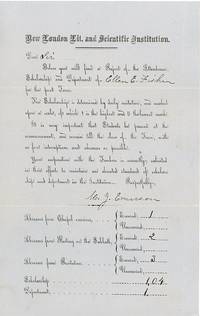 New London Lit. and Scientific Institution.
Dear Sir
Below you will find a Report of the Attendance,
Scholarship and Deportment of Ellen E. Fisher
for the past Term.
Scholarship is determined by daily recitations, and marked
upon a scale, of which 1 is the highest and
It is very important that Students be present at the
commencement, and remain till the close of the Term, with
as few interruptions and absences as possible.
Your cooperation with the Teachers is earnestly solicited
in their efforts to maintain an elevated standard of scholar-
ship and deportment in the Institution. Respectfully,
Absences from Chapel exercises, Excused, 1
Unexcused,
Absences from Meeting on the Sabbath, Excused, 2
Unexcused,
Absences from Recitation, Excused, 3
Unexcused,
Scholarship 1,04
Deportment 1.